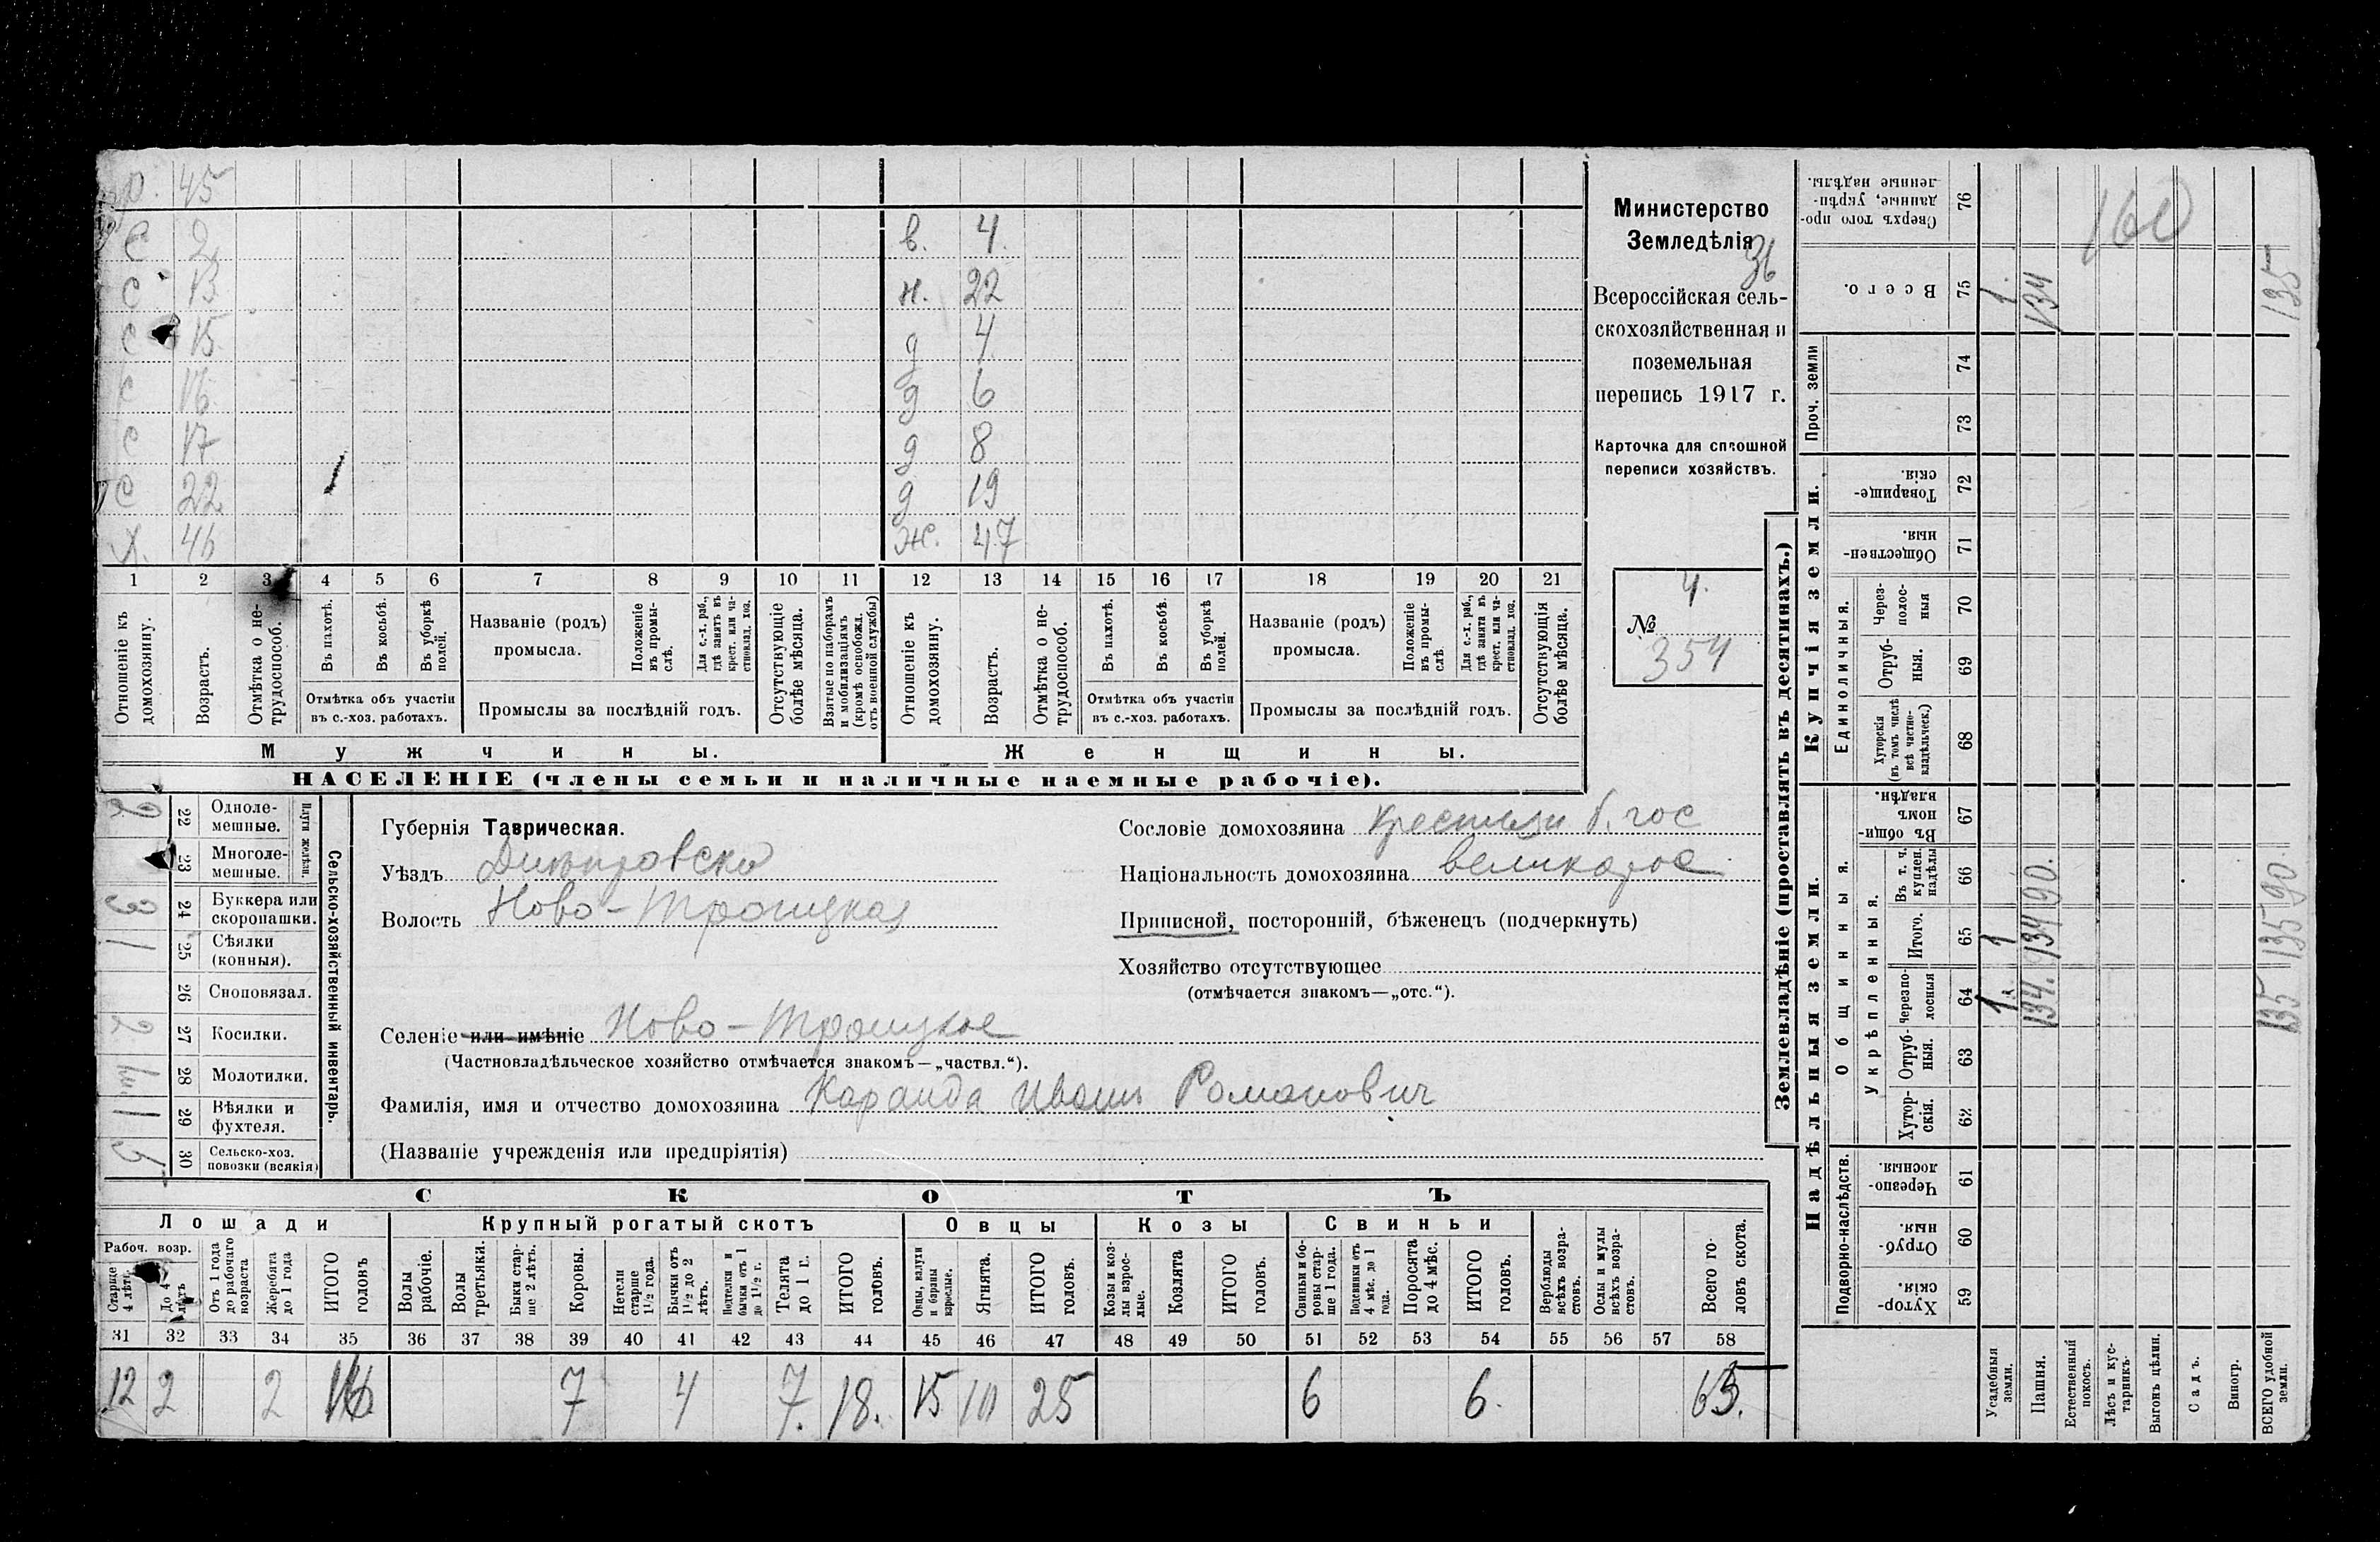 р. 45
С 2 в. 4.
С 13 н. 22
С 15 д 4
С 16 д 6
С 17 д 8
С 22 д 19
Х. 46 ж. 47
1 2 3 4 5 6 7 8 9 10 11 12 13 14 15 16 17 18 19 20 21
Отношеніе къ домохозяину.
Возрастъ.
Отмѣтка о не-трудоспособ.
Въ пахотѣ.
Въ косьбѣ.
Въ уборкѣ полей.
Отмѣтка объ участіи
въ с.-хоз. работахъ.
Названіе (родъ)
промысла.
Положеніе въ промы-слѣ.
Для с.-х. раб., гдѣ занятъ въ крест. или ча-стновлад. хоз.
Промыслы за послѣдній годъ.
Отсутствующіе болѣе мѣсяца.
Взятые по наборамъ и мобилизаціямъ (кромѣ освобожд. отъ военной службы)
Отношеніе къ домохозяину.
Возрастъ.
Отмѣтка о не-трудоспособ.
Въ пахотѣ.
Въ косьбѣ.
Въ уборкѣ полей.
Отмѣтка объ участіи
въ с.-хоз. работахъ.
Названіе (родъ)
промысла.
Положеніе въ промы-слѣ
Для с.-х. раб., гдѣ занята въ крест. или ча-стновлад. хоз.
Промыслы за послѣдній годъ.
Отсутствующія болѣе мѣсяца.
Мужчины. Женщины.
НАСЕЛЕНІЕ (члены семьи и наличные наемные рабочіе).
Министерство
Земледѣлія
36
Всероссійская сель-
скохозяйственная и
поземельная
перепись 1917 г.
Карточка для сплошной
переписи хозяйствъ.
4.
№
354
2 22 Одноле-мешные.
23 Многоле-мешные.
Плуги желѣзн.
3 24 Буккера или скоропашки.
1 25 Сѣялки (конныя).
26 Сноповязал.
2 27 Косилки.
28 Молотилки.
1 29 Вѣялки и фухтеля.
5 30 Сельско-хоз. повозки (всякія)
Сельско-хозяйственный инвентарь.
Губернія Таврическая.
Уѣздъ Днѣпровскій
Волость Ново-Троицкая
Селеніе или имѣніе Ново-Троицкое
(Частновладѣльческое хозяйство отмѣчается знакомъ—„частвл.“).
Фамилія, имя и отчество домохозяина Каранда Иванъ Романович
(Названіе учрежденія или предпріятія)
Сословіе домохозяина крестьян б. гос
Національность домохозяина великорос
Приписной, посторонній, бѣженецъ (подчеркнуть)
Хозяйство отсутствующее
(отмѣчается знакомъ—„отс.“).
СКОТЪ
Лошади Крупный рогатый скотъ Овцы Козы Свиньи
Рабоч. возр.
Старше 4 лѣтъ.
До 4 лѣтъ
Отъ 1 года до рабочаго возраста
Жеребята до 1 года
ИТОГО головъ
Волы рабочіе.
Волы третьяки.
Быки стар-ше 2 лѣтъ.
Коровы.
Нетели старше 1½ года.
Бычки отъ 1½ до 2 лѣтъ.
Подтелки и бычки отъ 1 до 1½ г.
Телята до 1 г.
ИТОГО головъ.
Овцы, валухи и бараны взрослые.
Ягнята.
ИТОГО головъ.
Козы и коз-лы взрос-лые.
Козлята
ИТОГО головъ.
Свиньи и бо-ровы стар-ше 1 года.
Подсвинки отъ 4 мѣс. до 1 года.
Поросята до 4 мѣс.
ИТОГО головъ.
Верблюды всѣхъ возра-стовъ.
Ослы и мулы всѣхъ возра-стовъ.
Всего го-ловъ скота.
31 32 33 34 35 36 37 38 39 40 41 42 43 44 45 46 47 48 49 50 51 52 53 54 55 56 57 58
12 2 2 16 7 4 7. 18. 15 10 25 6 6. 65.
Землевладѣніе (проставлять въ десятинахъ.)
Надѣльныя земли. Купчія земли. Проч. земли
Подворно-наслѣдств. Общинныя. Единоличныя.
Укрѣпленныя.
Хутор-скія. 59
Отруб-ныя. 60
Черезпо-лосныя. 61
Хутор-скія. 62
Отруб-ныя. 63
Черезпо-лосныя 64
Итого. 65
Въ т. ч. куплен. надѣлы 66
Въ общин-номъ владѣн. 67
Хуторскія (въ томъ числѣ всѣ частно-владѣльческ.) 68
Отруб-ныя. 69
Через-полос-ныя 70
Обществен-ныя. 71
Товарище-скія. 72
73
74
Всего. 75
Сверхъ того про-данные, укрѣп-ленные надѣлы. 76
Усадебныя земли. 1. 1 1.
Пашня. 134. 134 90. 134
Естественный покосъ.
160
Лѣсъ и кус-тарникъ.
Выгонъ цѣлин.
Садъ.
Виногр.
ВСЕГО удобной земли. 135 135 90. 135